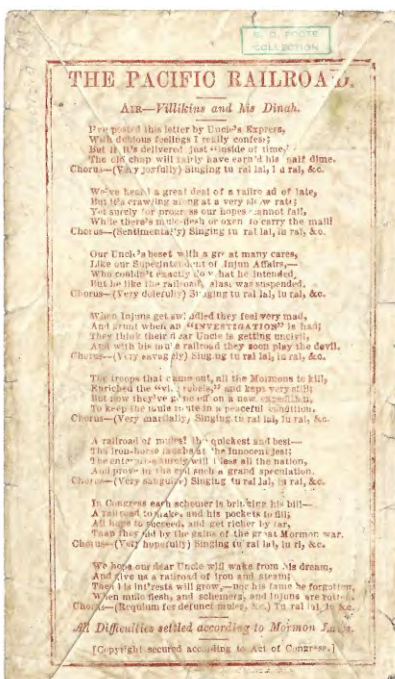 C. C. FOOTE
COLLECTION
THE PACIFIC RAILROAD.
AIR—Villikins and his Dinah.
I've posted this letter by Uncle's Express,
With dubious feelings I really confess;
But if it's delivered just "inside of time,"
The old chap will fairly have earn'd his half dime.
Chorus—(Very joyfully) Singing tu ral lal, lu ral, &c.
We've heard a great deal of a railroad of late,
But it's crawling along at a very slow rate;
Yet surely for progress our hopes cannot fail,
While there's mule-flesh or oxen to carry the mail!
Chorus—(Sentimentally) Singing tu ral lal, lu ral, &c.
Our Uncle's beset with a great many cares,
Like our Superintendent of Injun Affairs,—
Who couldn't exactly do what he intended,
But he like the railroad, alas! was suspended.
Chorus—(Very dolefully) Singing tu ral lal, lu ral, &c.
When Injuns get swindled they feel very mad,
And grunt when an "INVESTIGATION" is had;
They think their dear Uncle is getting uncivil,
And with his mule railroad they soon play the devil.
Chorus—(Very savagely) Singing tu ral lal, lu ral, &c.
The troops that came out, all the Mormons to kill,
Enriched the "vile rebels," and kept very still;
But now they've gone off on a new expedition,
To keep the mule route in a peaceful condition.
Chorus—(Very martially) Singing tu ral lal, lu ral, &c.
A railroad of mules! the quickest and best—
The iron-horse laughs at the innocent jest;
The enterprise surely will bless all the nation,
And prove in the end such a grand speculation.
Chorus—(Very sanguine) Singing tu ral lal, lu ral, &c.
In Congress each schemer is bringing his bill—
A railroad to make, and his pockets to fill;
All hope to succeed, and get richer by far,
Than they did by the gains of the great Mormon war.
Chorus—(Very hopefully) Singing tu ral lal, lu rl, &c.
We hope our dear Uncle will wake from his dream,
And give us a railroad of iron and steam;
Then his int'rests will grow,—nor his fame be forgotten,
When mule flesh, and schemers, and Injuns are rotten.
Chorus—(Requium for defunct mules, &c.) Tu ral lal, lu &c.
All Difficulties settled according to Mormon
[Copyright secured according to Act of Congress.]